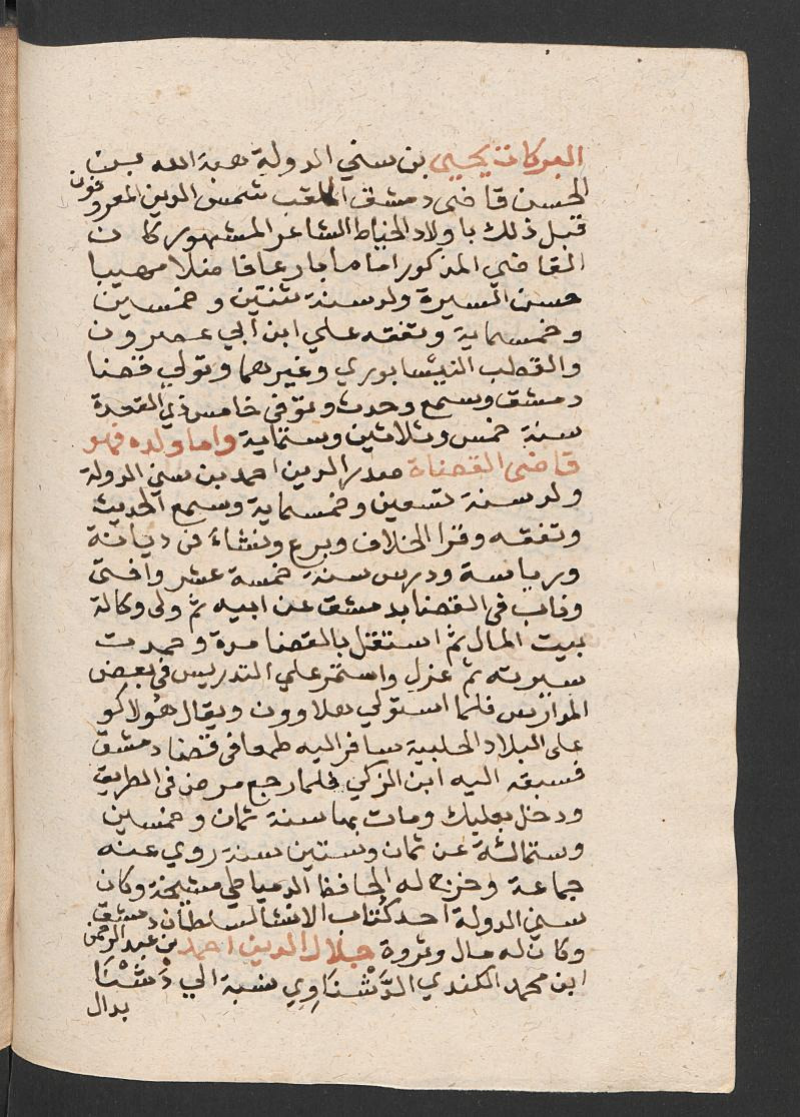 البركات يحيى بن سني الدولة هبة الله بن
الحسن قاضى دمشق الملقب شمس الدين المعروفون
قبل ذلك باولاد الخياط الشاعر المشهور كان
القاضي المذكور اماما بارعا فاضلا مهيبا
حسن السيرة ولد سنة ثنتين وخمسين
وخمسماية وتفقه علي ابن ابي عصرون
والقطب النيشابوري وغيرهما وتولي قضا
دمشق وسمع وحدث وتوفى خامس ذي القعدة
سنة خمس وثلاثين وستماية واما ولده فهو
قاضى القضاة صدر الدين احمد بن سني الدولة
ولد سنة تسعين وخمسماية وسمع الحديث
وتفقه وقرا الخلاف وبرع ونشاء فى ديانة
ورياسة ودرس سنة خمسة عشر وافتى
وناب فى القضا بدمشق عن ابيه ثم ولى وكالة
بيت المال ثم استقل بالقضا مدة وحمدت
سيرته ثم عزل واستمر علي التدريس فى بعض
المدارس فلما استولي هلاوون ويقال هولاكو
على البلاد الحلبية سافر اليه طمعا فى قضا دمشق
فسبقه اليه ابن الزكي فلما رجع مرض فى الطريق
ودخل بعلبك ومات بها سنة ثمان وخمسين
وستمائة عن ثمان وستين سنة روي عنه
جماعة وخرج له الحافظ الدمياطي مشيخة وكان
سني الدولة احد كُتاب الانشا لسلطان دمشق
وكان له مال وثروة جلال الدين احمد بن عبد الرحمن
ابن محمد الكندي الدَّشْنَاوِي نسبة الي دَشْنَا
بدال